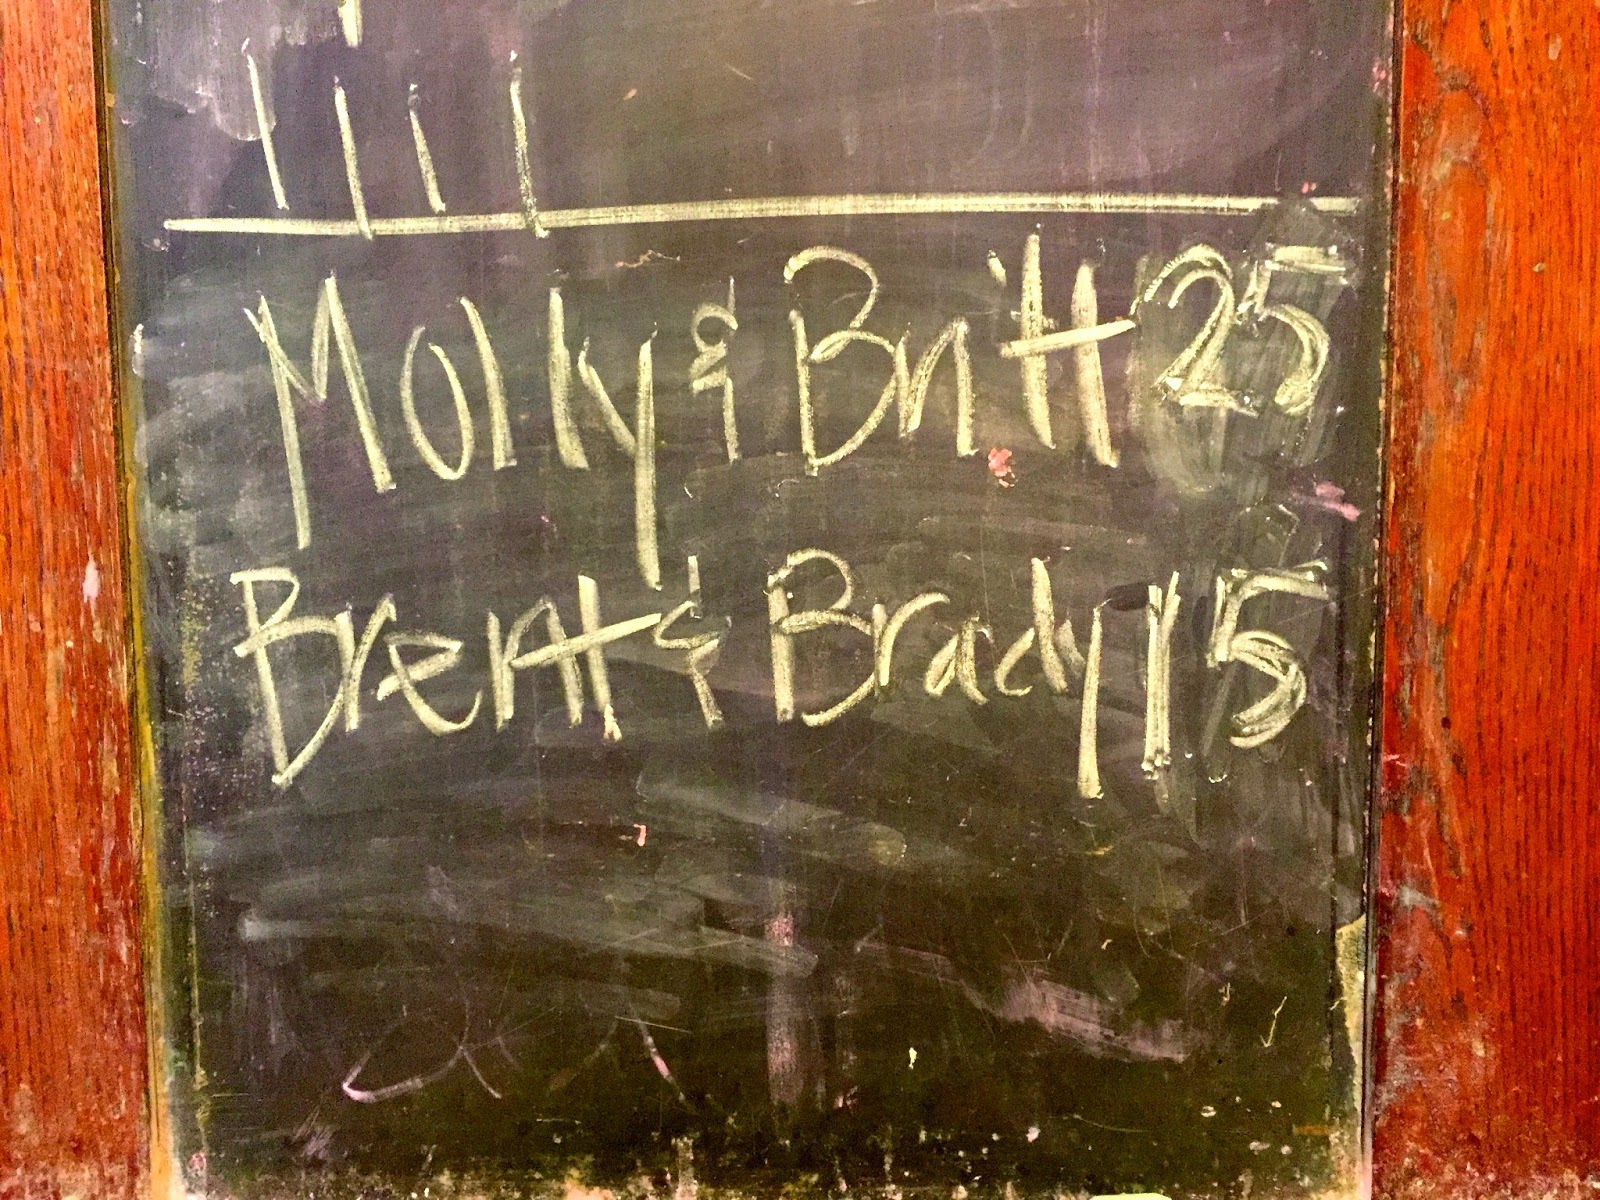 ||||
Molly & Britt 25
Brent & Brady 15